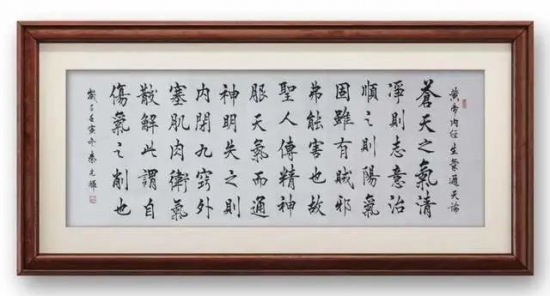 黃帝内经生氣通天論
蒼天之氣清
淨則志意治
順之則陽氣
固雖有賊邪
弗能害也故
聖人傳精神
服天氣而通
神明失之則
内閉九窍外
塞肌肉衛氣
散解此謂自
傷氣之削也
歲在壬寅冬